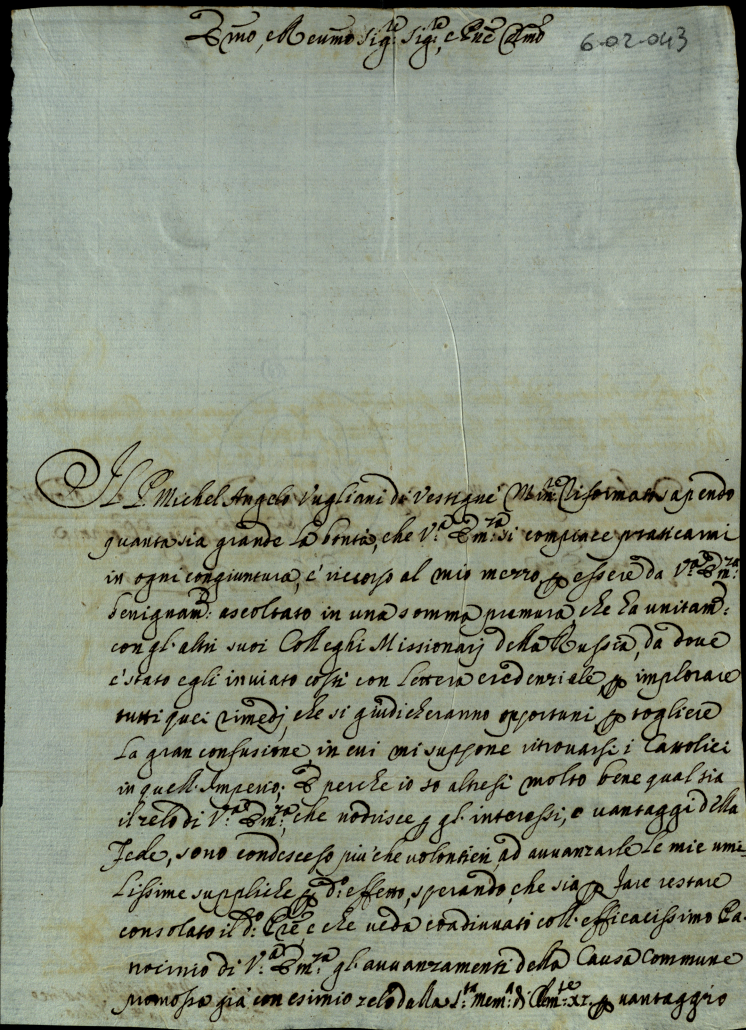 Em̃o, e Reum̃o Sig:re Sig:re, e Pñe Cmõ
6-02-043
Il P. Michel Angelo Vugliani da Vestigne Min: sapendo
quanta sia grande la bontà, che V:a Em:za si compiace praticarmi
in ogni congiuntura, è ricorso al mio mezzo, p essere da V:a Em:za
benignam:e ascoltato in una somma premura, che ha unitam:e
con gl'altri suoi Colleghi Missionarij della Russia, da dove
è stato egli inviato costì con lettera credenziale, p implorare
tutti quei rimedj, che si giudicheranno opportuni p togliere
la gran confusione, in cui mi suppone ritrovarsi i Cattolici
in quell'Imperio; E perche io so altresì molto bene qual sia
il zelo di V:a Em:za, che nodrisce p gl'interessi, e vantaggi della
Fede, sono condesceso più che volontieri ad avvanzarle le mie umi=
lissime suppliche p d:o effetto, sperando, che sia p fare restare
consolato il d:o Pr̃e, e che veda coadiuvato coll'efficacissimo Pa=
trocinio di V:a Em:za gl'avvanzamenti della Causa Commune
promossa già con esimio zelo dalla S:ta Mem:a di Clem:te XI. p vantaggio